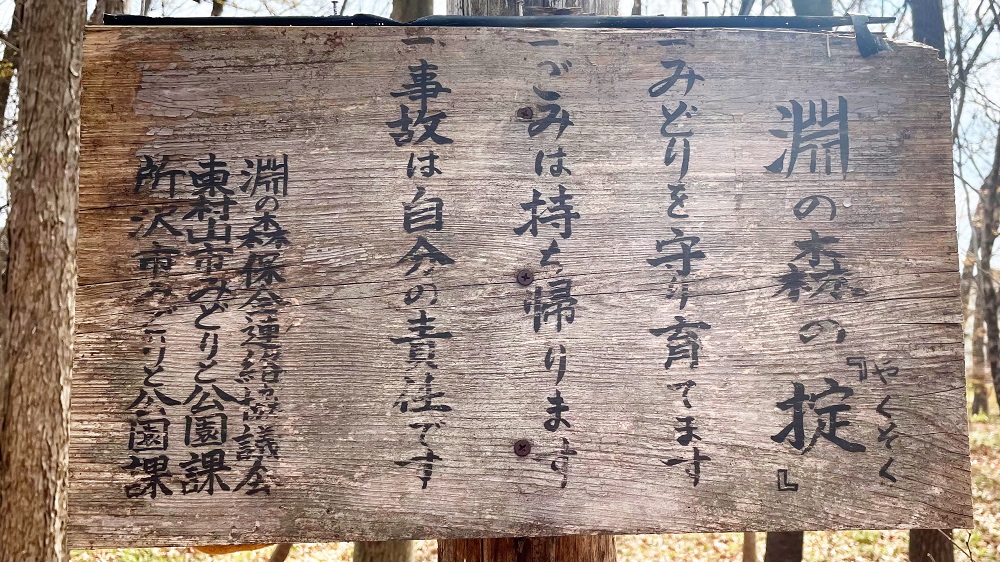 淵の森の『掟』
やくそく
一みどりを守り育てます
一ごみは持ち帰ります
一事故は自分の責任です
淵の森保全連絡協議会
東村山市みどりと公園課
所沢市みどりと公園課